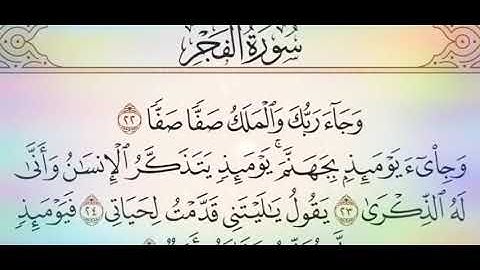 سُورَةُ الْفَجْرِ
وَجَآءَ رَبُّكَ وَالْمَلَكُ صَفًّا صَفًّا ٢٢
وَجِا۟ىٓءَ يَوْمَئِذٍۭ بِجَهَنَّمَ ۚ يَوْمَئِذٍ يَتَذَكَّرُ الْإِنسَانُ وَأَنَّىٰ
لَهُ الذِّكْرَىٰ ٢٣ يَقُولُ يَالَيْتَنِى قَدَّمْتُ لِحَيَاتِى ٢٤ فَيَوْمَئِذٍ